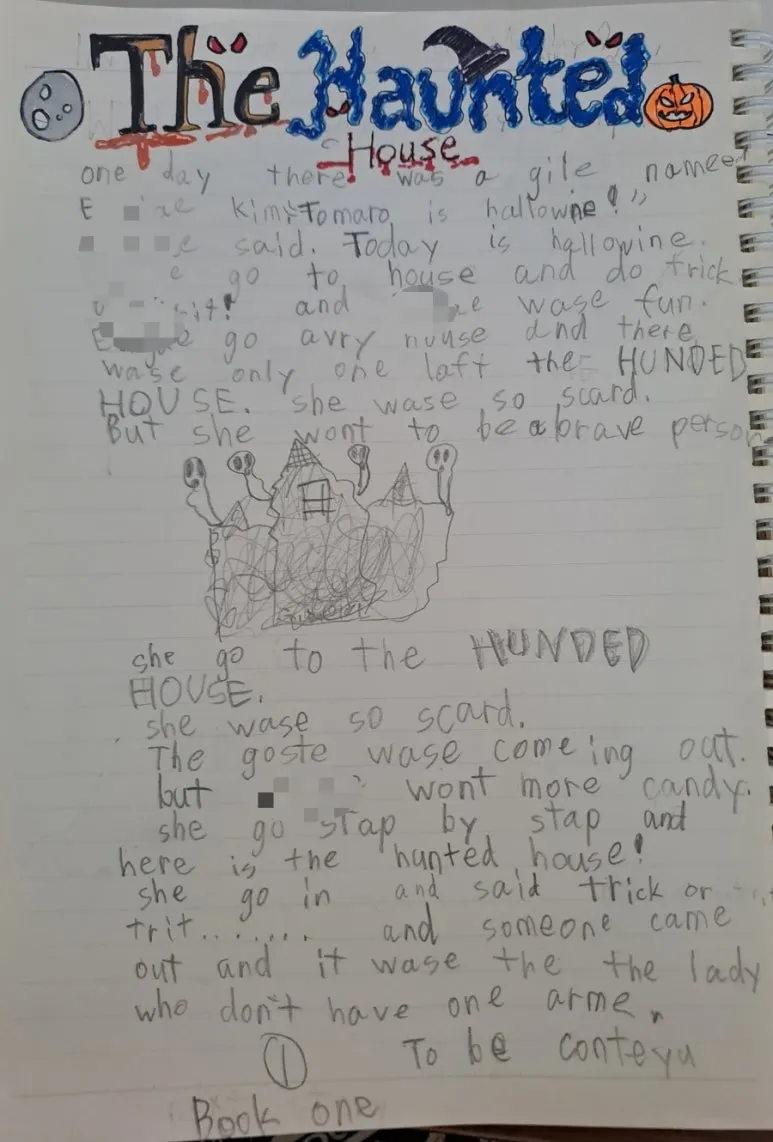 The Haunted
House
one day there was a gile named
kim; Tomaro is hallowne!"
said. Today is hallowine.
go to house and do trick
and wase fun.
go avry huuse and there
wase only one left the HUNDED
HOUSE. she wase so scard.
But she wont to be a brave person
she go to the HUNDED
HOUSE.
she wase so scard.
The goste wase come ing out.
but wont more candy.
she go stap by stap and
here is the hunted house!
she go in and said trick or
trit........ and someone came
out and it wase the the lady
who don't have one arme.
1 To be conteyu
Book one